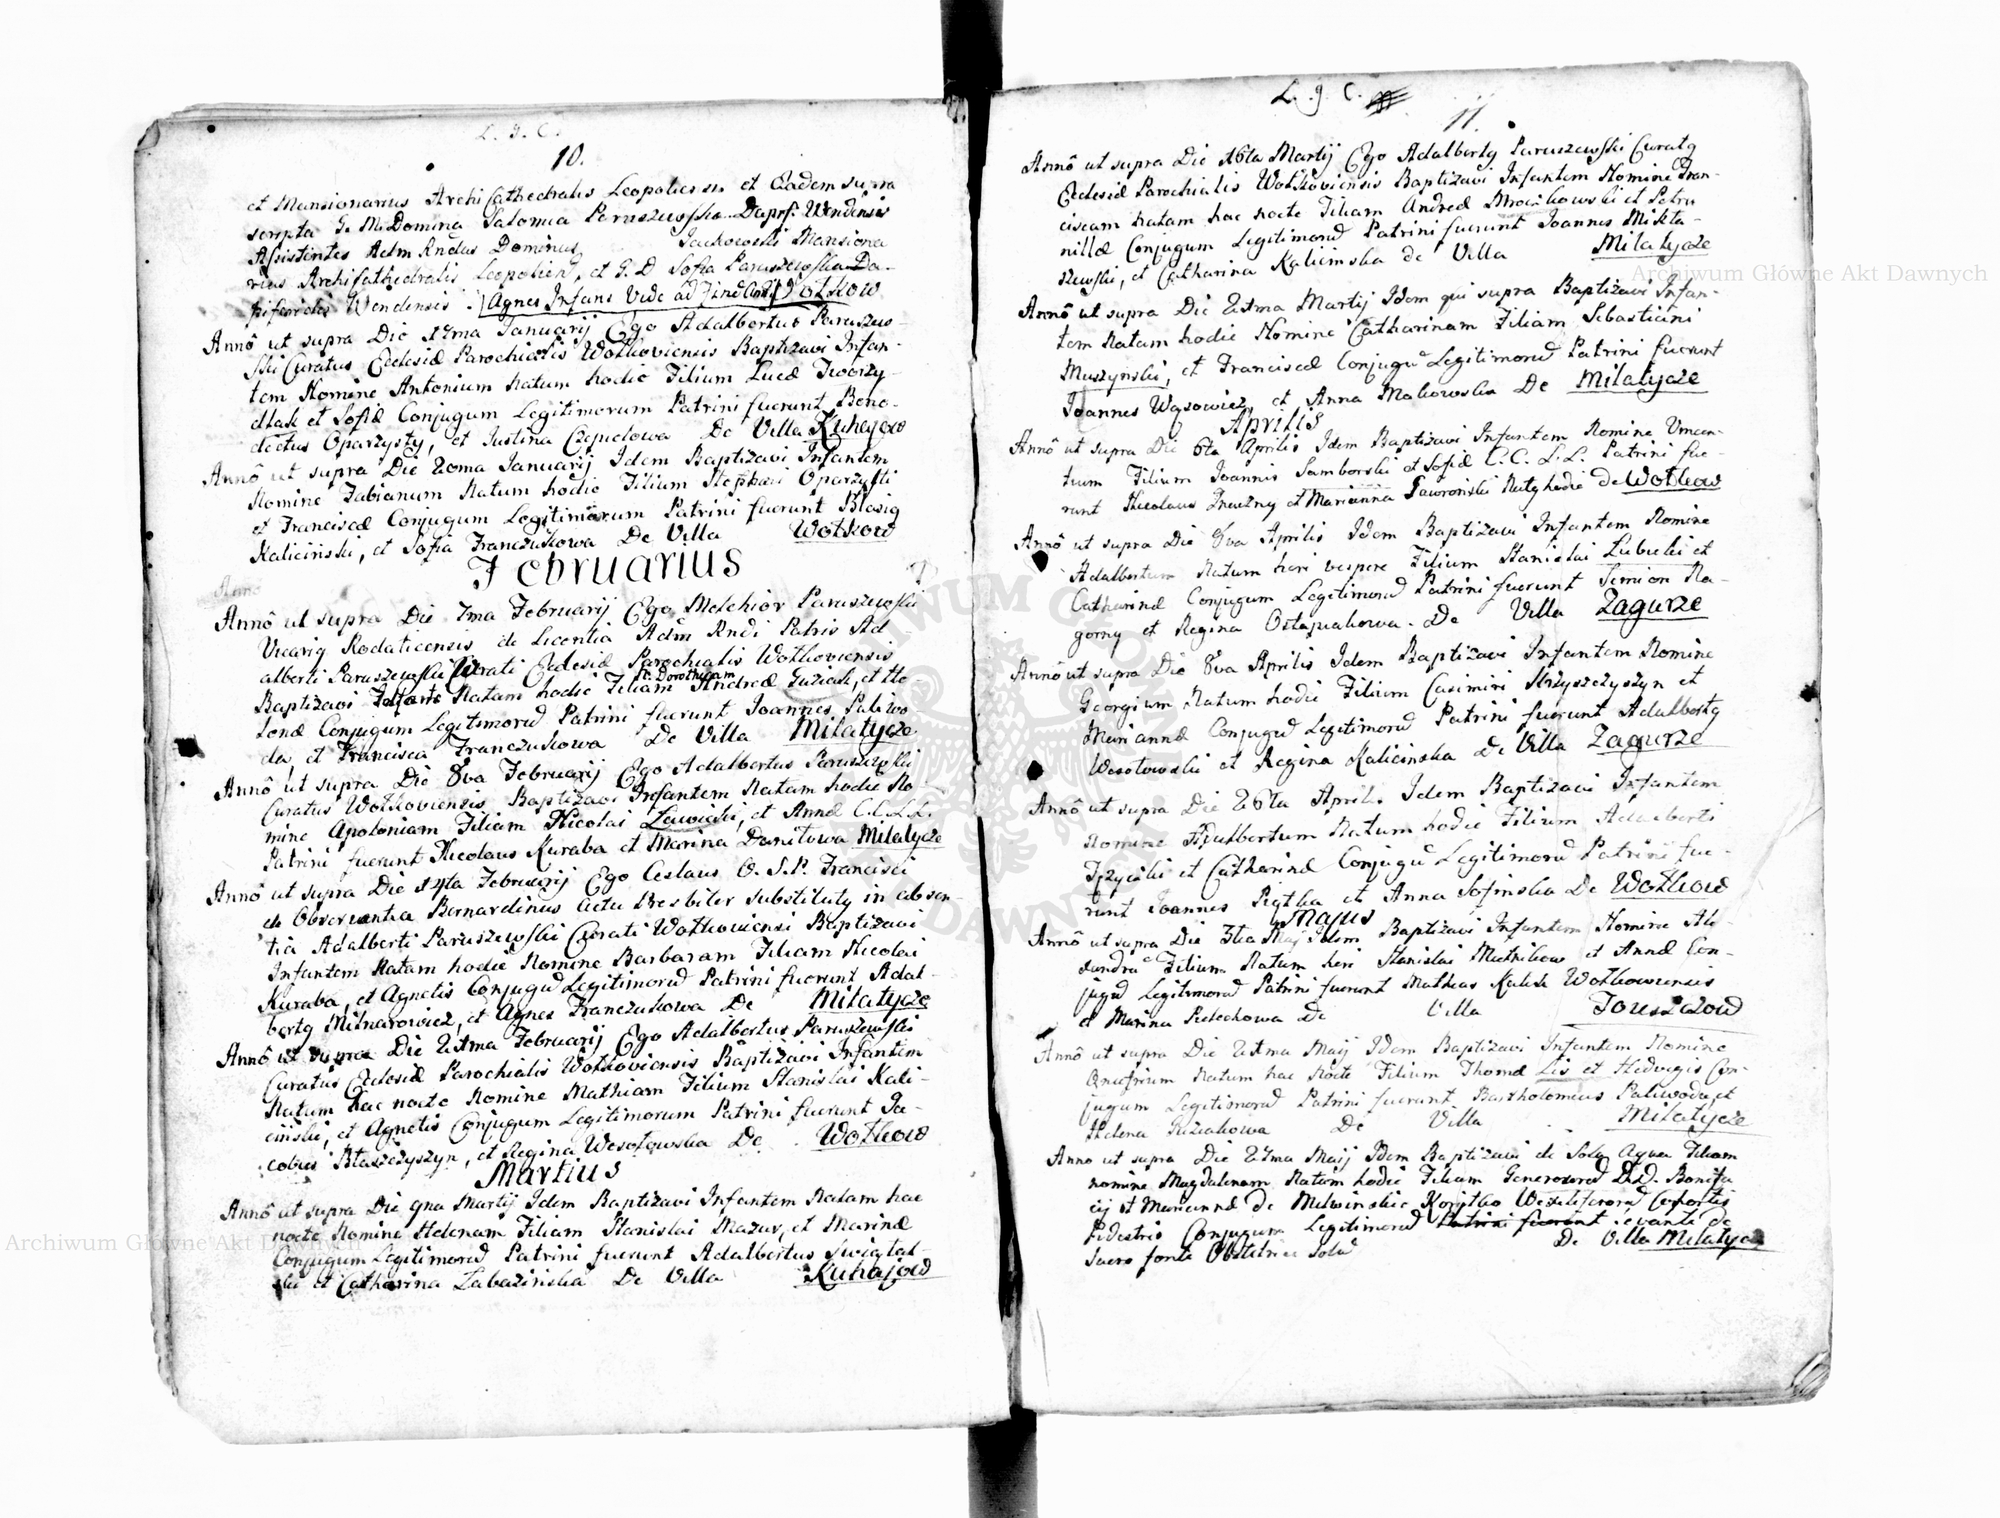 L. J. C.
10.
et Mansionarius Archi Cathedralis Leopoliensis et Eadem supra
scripta G. M. Domina Salomea Paruszewska Dapif. Wendensis
Assistentes Adm Rndus Dominus Jackowski Mansiona
rius Archi Cathedralis Leopolien, et G. D Sofia Paruszewska Da-
piferides Wendensis Agnes Infans Vide ad Finem Wołkow
Annô ut supra Die 17ma Januarij Ego Adalbertus Paruszew-
ski Curatus Ecclesiæ Parochialis Wołkoviensis Baptizavi Infan-
tem Nomine Antonium natum hodie Filium Lucæ
et Sofiæ Conjugum Legitimorum Patrini fuerunt Bene-
dictus Oparzysty, et Justina Czepelowa De Villa Kuhajow
Annô ut supra Die 20ma Januarij Idem Baptizavi Infantem
Nomine Fabianum Natum hodie Filium Stephani Oparzysti
et Franciscæ Conjugum Legitimorum Patrini fuerunt Blasig
Kaliciński, et Sofia Franczukowa De Villa Wołkow
Februarius
Anno
Annô ut supra Die 7ma Februarij Ego Melchior Paruszewski
Vicarig Rodaticensis de Licentia Adm Rndi Patris Ad-
alberti Paruszewski Curati Ecclesiæ Parochialis Wołkoviensis
n. Dorotheam
Baptizavi Infante Natam hodie Filiam Andreæ Guziak, et He-
lenæ Conjugum Legitimorũ Patrini fuerunt Joannes Paliwo-
da, et Francisca Franczukowa De Villa Milatycze
Annô ut supra Die 8va Februarij Ego Adalbertus Paruszewski
Curatus Wołkoviensis Baptizavi Infantem Natam hodie No-
mine Apoloniam Filiam Nicolai Zawiski, et Annæ C. C. L. L.
Patrini fuerunt Nicolaus Kuraba et Marina Daniłowa Milatycze
Annô ut supra Die Februarij Ego Ceslaus O. S. P. Francisci
de Observantia Bernardinus actu Presbiter substitutg in absen-
tia Adalberti Paruszewski Curati Wołkoviensi Baptizavi
Infantem Natam hodie Nomine Barbaram Filiam Nicolai
Kuraba, et Agnetis Conjugũ Legitimorũ Patrini fuerunt Adal-
bertg Milnarowicz, et Agnes Franczukowa De Milatycze
Annô ut supra Die 24ma Februarij Ego Adalbertus Paruszewski
Curatus Ecclesiæ Parochialis Wołkoviensis Baptizavi Infantem
Natum hac nocte Nomine Mathiam Filium Stanislai Kali-
ciński, et Agnetis Conjugum Legitimorum Patrini fuerunt Ja-
cobus Błaszczyszyn, et Regina Wesołowska De Wołkow
Martius
Annô ut supra Die 9na Martij Idem Baptizavi Infantem Natam hac
nocte Nomine Helenam Filiam Stanislai Mazur, et Marinæ
Conjugum Legitimorũ Patrini fuerunt Adalbertus Swiątal-
ski et Catharina Labazińska De Villa Kuhajow
L. J. C.
11.
Annô ut supra Die 16ta Martij Ego Adalbertg Paruszewski Curatg
Ecclesiæ Parochialis Wołkoviensis Baptizavi Infantem Nomine Fran-
ciscam natam hac nocte Filiam Andreæ Mroczkowski et Petro-
nillæ Conjugum Legitimorũ Patrini fuerunt Joannes Mikta-
szewski, et Catharina Kalicinska de Villa Milatycze
Annô ut supra Die 24ma Martij Idem qui supra Baptizavi Infan-
tem Natam hodie Nomine Catharinam Filiam Sebastiani
Muszynski, et Franciscæ Conjugũ Legitimorũ Patrini fuerunt
Joannes Wąsowicz, et Anna Makowska De Milatycze
Aprilis
Annô ut supra Die 6ta Aprilis Idem Baptizavi Infantem Nomine Vincen-
tium Filium Joannis Samborski et Sofiæ C. C. L. L. Patrini fue-
runt Nicolaus et Marianna Jaworoński Natg hodie de Wołkow
Annô ut supra Die 8va Aprilis Idem Baptizavi Infantem Nomine
Adalbertum Natum heri vespere Filium Stanislai Lubeki et
Catharinæ Conjugum Legitimorũ Patrini fuerunt Semion Na-
gorny et Regina Ostapiukowa. De Villa Zagurze
Annô ut supra Die 8va Aprilis Idem Baptizavi Infantem Nomine
Georgium Natum hodie Filium Casimiri Krzyszczyszyn et
Mariannæ Conjugũ Legitimorũ Patrini fuerunt Adalbertg
Wesołowski et Regina Kalicinska De Villa Zagurze
Annô ut supra Die 26ta Aprilis Idem Baptizavi Infantem
Nomine Adalbertum Natum hodie Filium Adalberti
et Catharinæ Conjugũ Legitimorũ Patrini fue-
runt Joannes Piątka et Anna Sofinska De Wołkow
Majus
Annô ut supra Die 3tia Maij Idem Baptizavi Infantem Nomine Ale-
xandrũ Filium Natum heri Stanislai Mielnikow et Annæ Con-
jugũ Legitimorũ Patrini fuerunt Mathias Kulik Wołkowiensis
et Marina Pelechowa De Villa Touszczow
Annô ut supra Die 24ma Maij Idem Baptizavi Infantem Nomine
Onufrium Natum hac Nocte Filium Thomæ Lis et Hedvigis Con-
jugum Legitimorũ Patrini fuerunt Bartholomeus Paliwoda, et
Helena De Villa Milatycze
Anno ut supra Die 24ma Maij Idem Baptizavi de Sola Aqua Filiam
nomine Magdalenam Natam hodie Filiam Generosorũ D.D. Bonifa
cij et Mariannæ de Melwinskie Korytko Wexiliferorũ Cohortis
Pedestris Conjugum Legitimorũ Patrini fuerunt levante de
Sacro fonte Obstetrice Sola De Villa Milatycze
Archiwum Główne Akt Dawnych
Archiwum Główne Akt Dawnych
ARCHIWUM GŁÓWNE AKT DAWNYCH